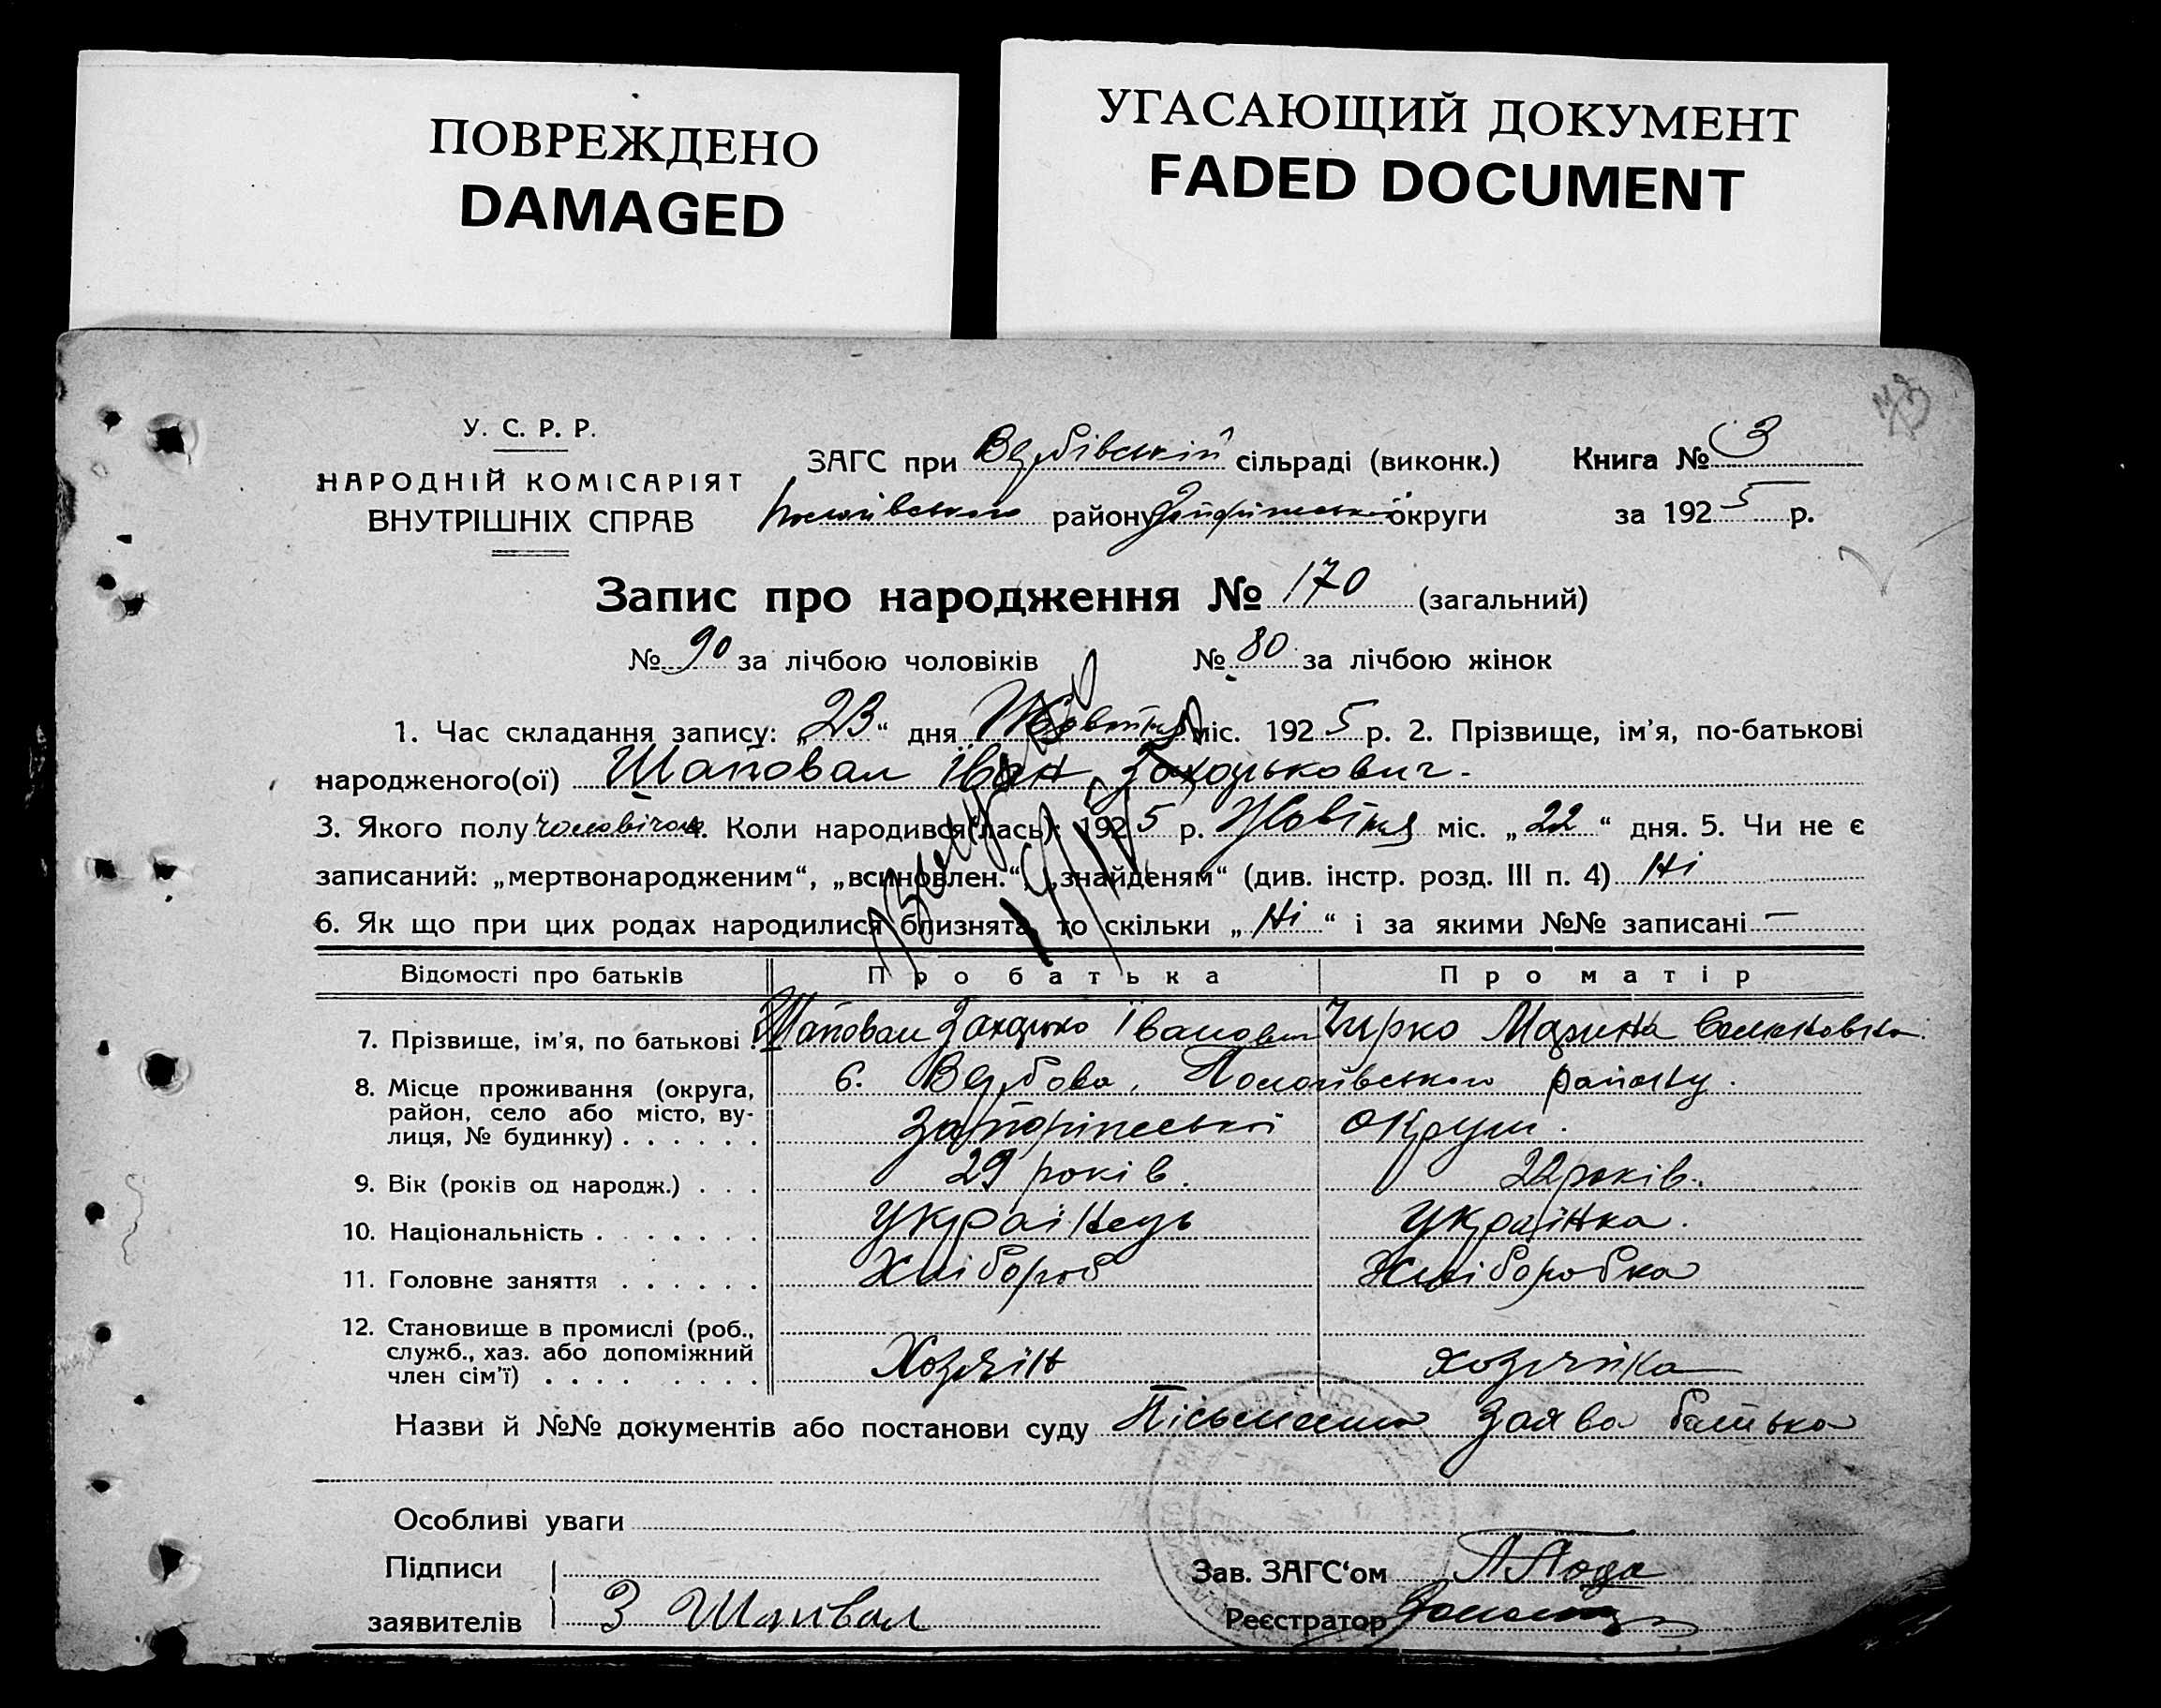 ПОВРЕЖДЕНО
DAMAGED
УГАСАЮЩИЙ ДОКУМЕНТ
FADED DOCUMENT
У. С. Р. Р.
НАРОДНІЙ КОМІСАРІЯТ
ВНУТРІШНІХ СПРАВ
ЗАГС при Вербівській сільраді (виконк.)
Пологівського району Запоріжської округи
Книга № 3
за 1925 р.
Запис про народження № 170 (загальний)
№ 90 за лічбою чоловіків № 80 за лічбою жінок
1. Час складання запису: „23“ дня Жовтня міс. 1925 р. 2. Прізвище, ім'я, по-батькові
народженого(ої) Шаповал Іван Захарькович.
3. Якого полу чоловічого 4. Коли народився(лась): 1925 р. Жовтня міс. „22“ дня. 5. Чи не є
записаний: „мертвонародженим“, „всиновлен.“, „знайденям“ (див. інстр. розд. III п. 4) Ні
6. Як що при цих родах народилися близнята, то скільки „Ні“ і за якими №№ записані —
Відомості про батьків Про батька Про матір
7. Прізвище, ім'я, по батькові . Шаповал Захарько Іванович Чирко Марина
8. Місце проживання (округа, район, село або місто, вулиця, № будинку) . . . . . . с. Вербова, Пологівського району.
Запоріжської округи.
9. Вік (років од народж.) . . . 29 років. 22 років.
10. Національність . . . . . . . Українець Українка.
11. Головне заняття . . . . . . Хлібороб Хліборобка
12. Становище в промислі (роб., служб., хаз. або допоміжний член сім'ї) . . . . . . . . . Хозяїн хозяйка
Назви й №№ документів або постанови суду Пісьменна Заява батька
Особливі уваги
Підписи
заявителів З Шаповал
Зав. ЗАГС'ом
Реєстратор